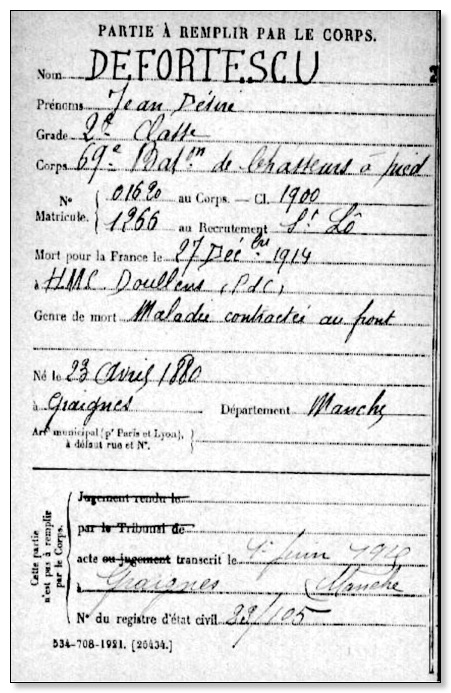 PARTIE À REMPLIR PAR LE CORPS.
Nom DEFORTESCU
Prénoms Jean Désiré
Grade 2e Classe
Corps 69e Baton de Chasseurs à pied
N° Matricule. { 01620 au Corps. — Cl. 1900
1266 au Recrutement St Lô
Mort pour la France le 27 Déc bre 1914
à H.M.C. Doullens (PdC)
Genre de mort Maladie contractée au front
Né le 23 Avril 1880
à Graignes Département Manche
Arrt municipal (pr Paris et Lyon),
à défaut rue et N°.
Cette partie n'est pas à remplir par le Corps.
Jugement rendu le
par le Tribunal de
acte ou jugement transcrit le 1er Juin 1920
à Graignes Manche
N° du registre d'état civil 22/105
534-708-1921. [26434.]